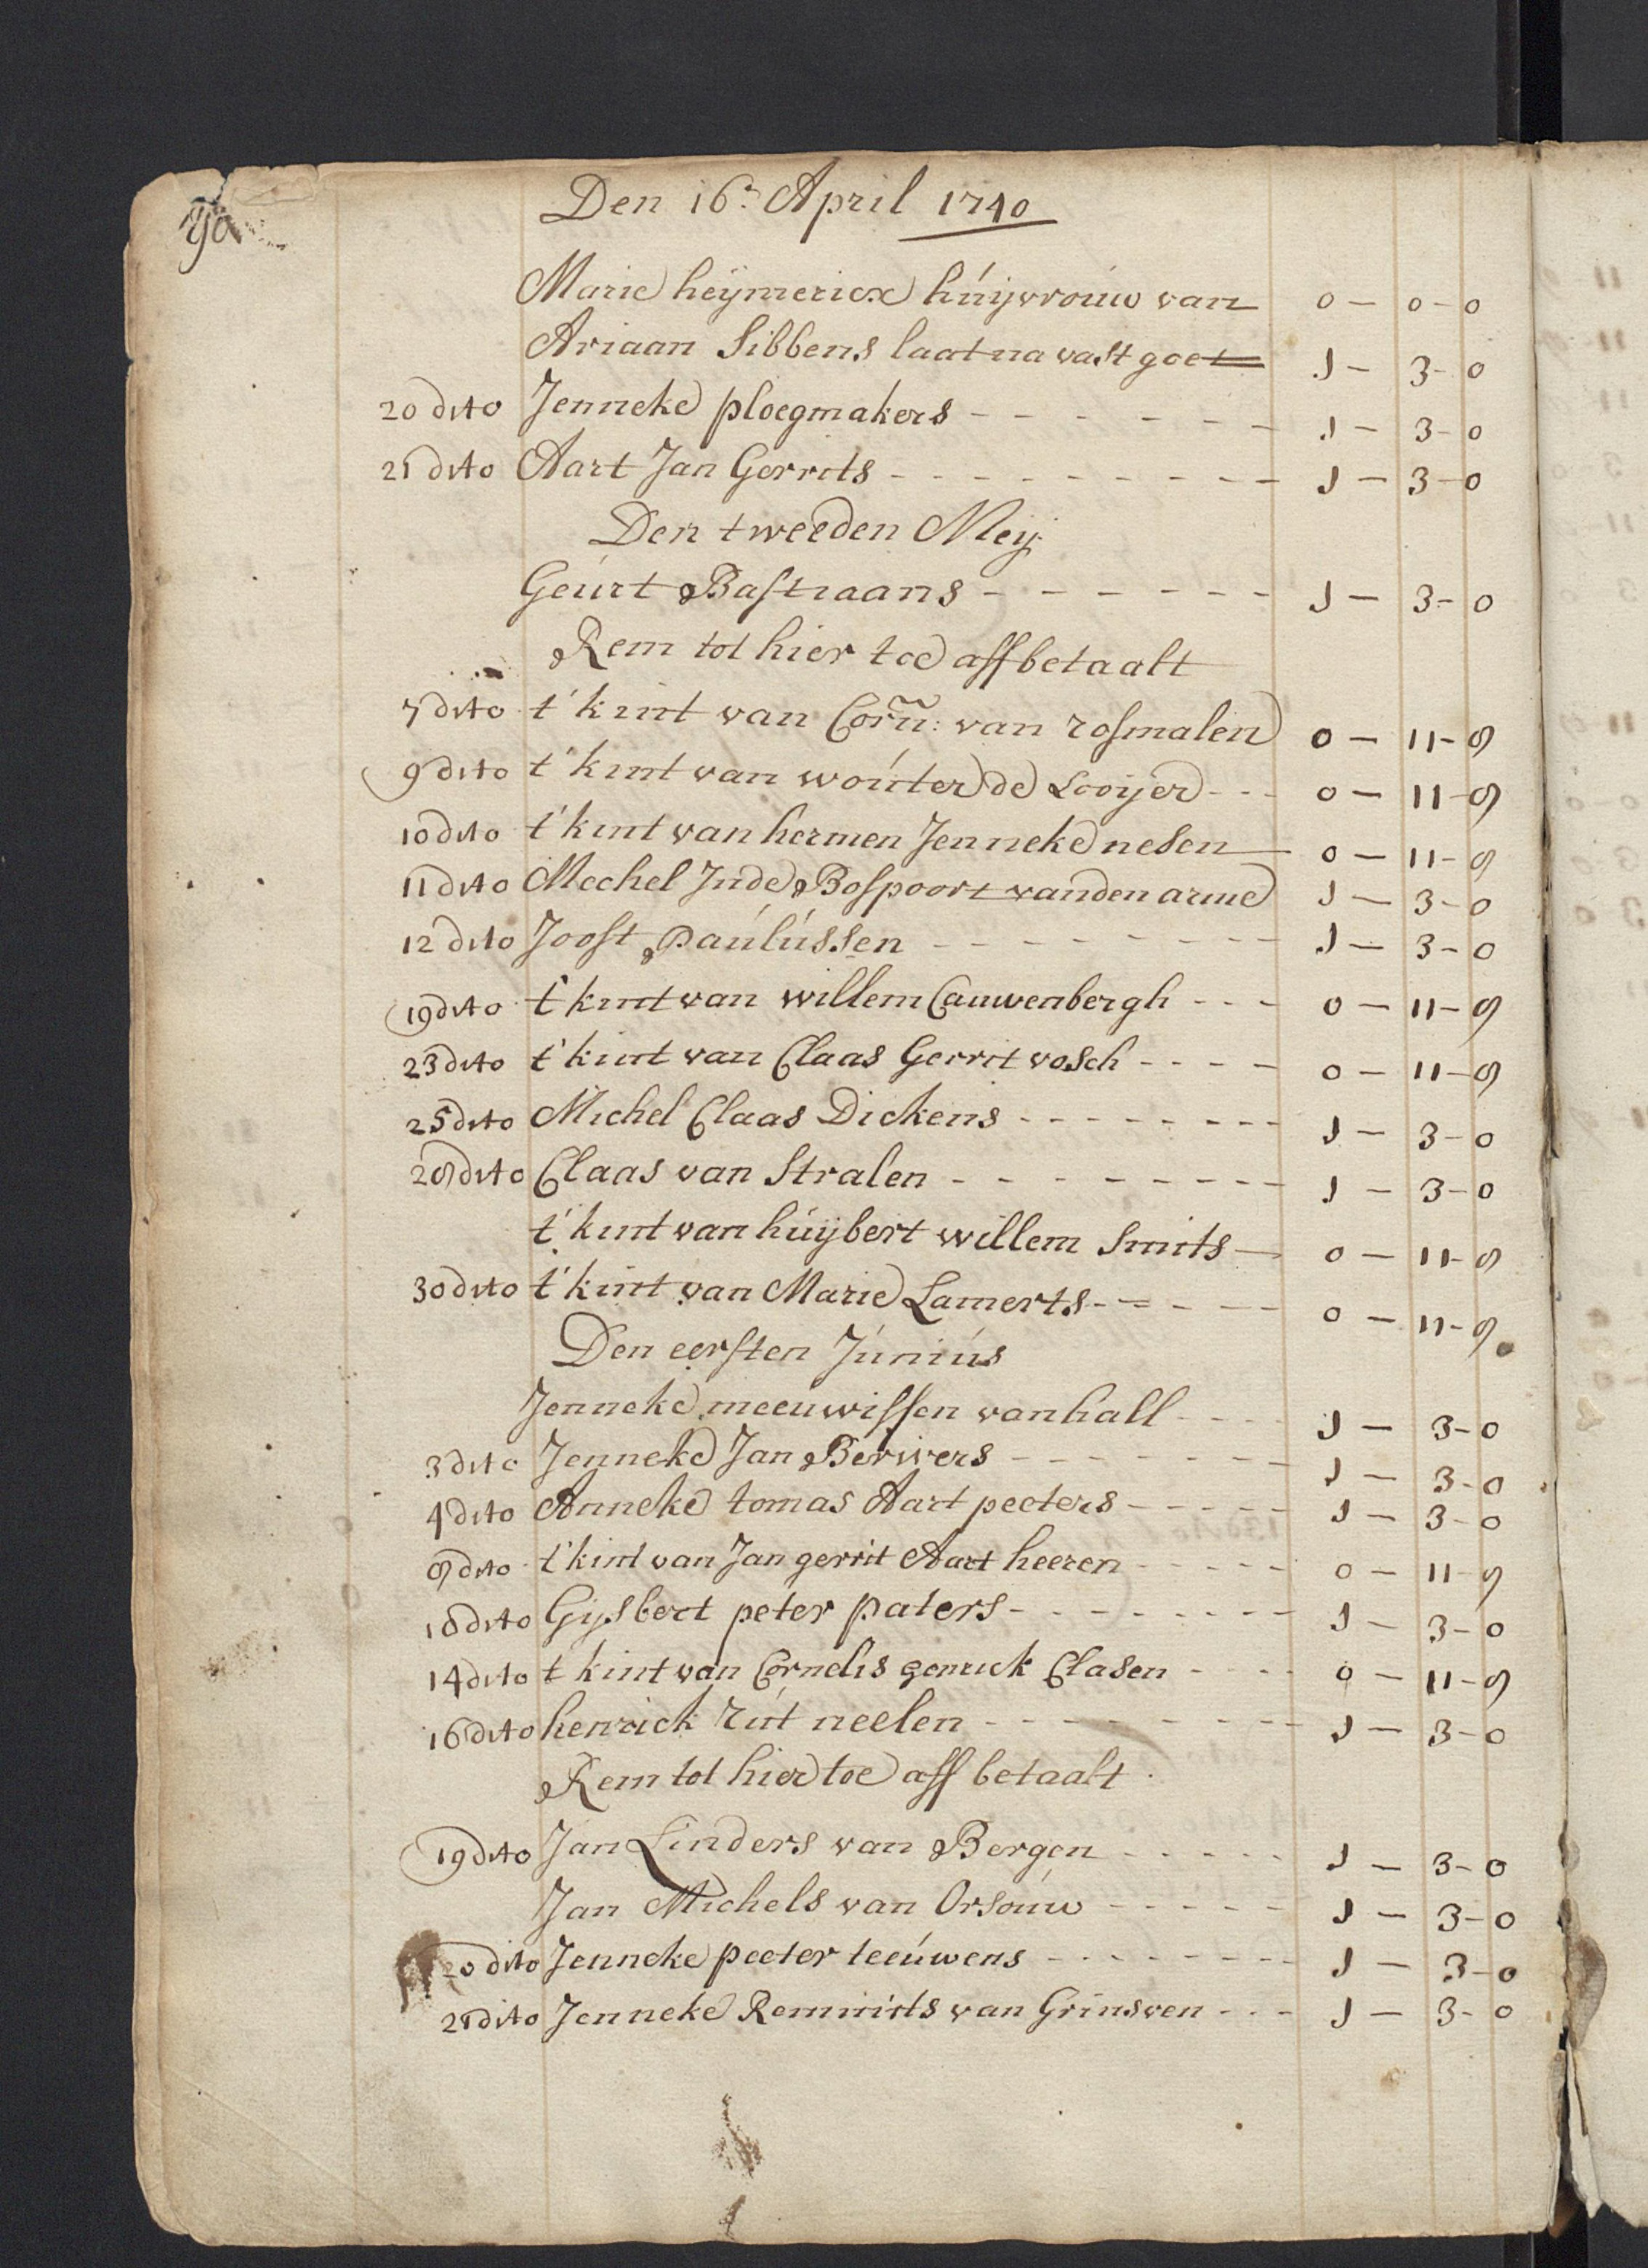 Den 16: April 1740
Marie heijmericx húijvroúw van 0 - 0 - 0
Ariaan Sibbens laat na vast goet 1 - 3 - 0
20 dito Jenneke ploegmakers - - - - - - 1 - 3 - 0
21 dito Aart Jan Gerrits - - - - - - - - - 1 - 3 - 0
Den tweeden Meij
Geúrt Bastiaans - - - - - - 1 - 3 - 0
Rem tot hier toe aff betaalt
7 dito t' kint van Corñ: van rosmalen 0 - 11 - 9
9 dito t' kint van woúter de Looijer - - - 0 - 11 - 9
10 dito t' kint van hermen Jenneke nesen 0 - 11 - 9
11 dito Mechel Inde Bospoort vanden arme 1 - 3 - 0
12 dito Joost Paúlússen - - - - - - - - 1 - 3 - 0
19 dito t' kint van willem Cauwenbergh - - - 0 - 11 - 9
23 dito t' kint van Claas Gerrit vosch - - - - 0 - 11 - 9
25 dito Michel Claas Dickens - - - - - - - - 1 - 3 - 0
28 dito Claas van Stralen - - - - - - - - 1 - 3 - 0
t' kint van húijbert willem Smits - 0 - 11 - 9
30 dito t' kint van Marie Lamerts - - - - - 0 - 11 - 9
Den eersten Júniús
Jenneke meeuwissen van hall - - - - 1 - 3 - 0
3 dito Jenneke Jan Berwers - - - - - - - 1 - 3 - 0
4 dito Anneke tomas Aart peeters - - - - - 1 - 3 - 0
8 dito t' kint van Jan gerrit Aart heeren - - - - - 0 - 11 - 9
10 dito Gijsbert peter paters - - - - - - - - 1 - 3 - 0
14 dito t kint van Cornelis Clasen - - - - 0 - 11 - 9
16 dito henrick rút neelen - - - - - - - - - 1 - 3 - 0
Rem tot hier toe aff betaalt
19 dito Jan Linders van Bergen - - - - - 1 - 3 - 0
Jan Michels van Orsoúw - - - - - 1 - 3 - 0
20 dito Jenneke peeter teeúwens - - - - - - - 1 - 3 - 0
21 dito Jenneke van Grinsven - - - 1 - 3 - 0